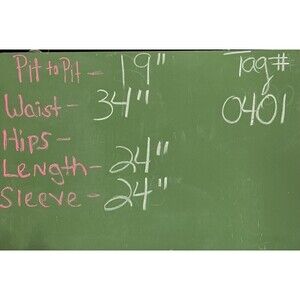 Pit to Pit - 19"
Waist - 34"
Hips -
Length - 24"
Sleeve - 24"
Tag #
0401